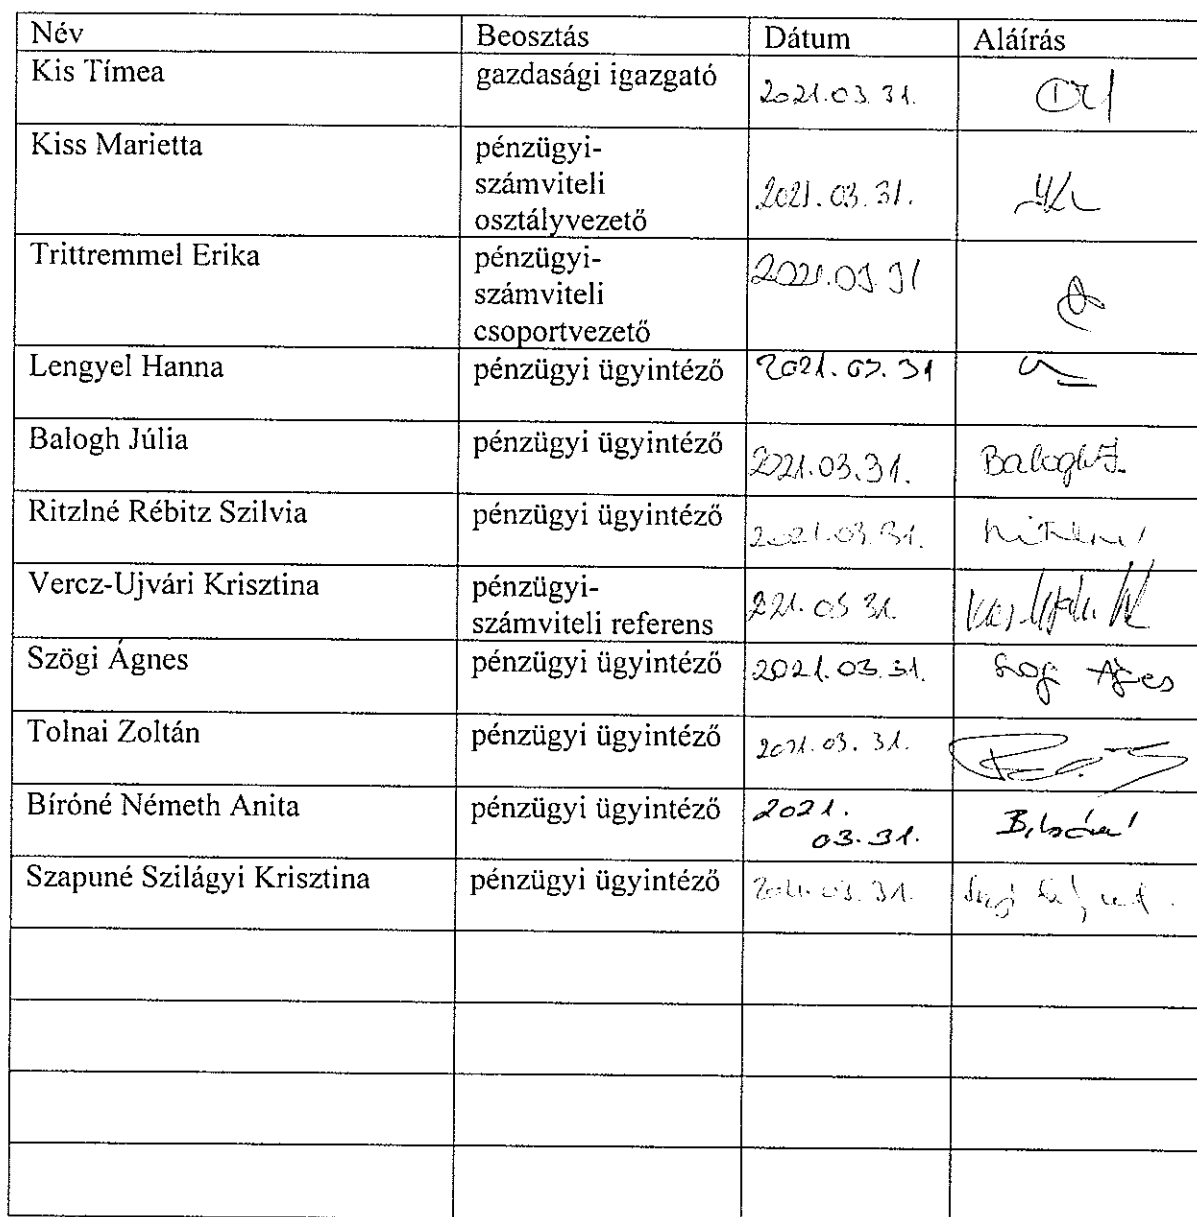 Név Beosztás Dátum Aláírás
Kis Tímea gazdasági igazgató 2021.03.31.
Kiss Marietta pénzügyi-
számviteli
osztályvezető 2021.03.31.
Trittremmel Erika pénzügyi-
számviteli
csoportvezető 2021.03.31
Lengyel Hanna pénzügyi ügyintéző 2021.03.31
Balogh Júlia pénzügyi ügyintéző 2021.03.31. Balogh J.
Ritzlné Rébitz Szilvia pénzügyi ügyintéző 2021.03.31.
Vercz-Ujvári Krisztina pénzügyi-
számviteli referens 221.03 31.
Szögi Ágnes pénzügyi ügyintéző 2021.03.31.
Tolnai Zoltán pénzügyi ügyintéző 2021.03.31.
Bíróné Németh Anita pénzügyi ügyintéző 2021.
03.31.
Szapuné Szilágyi Krisztina pénzügyi ügyintéző 2021.03.31.